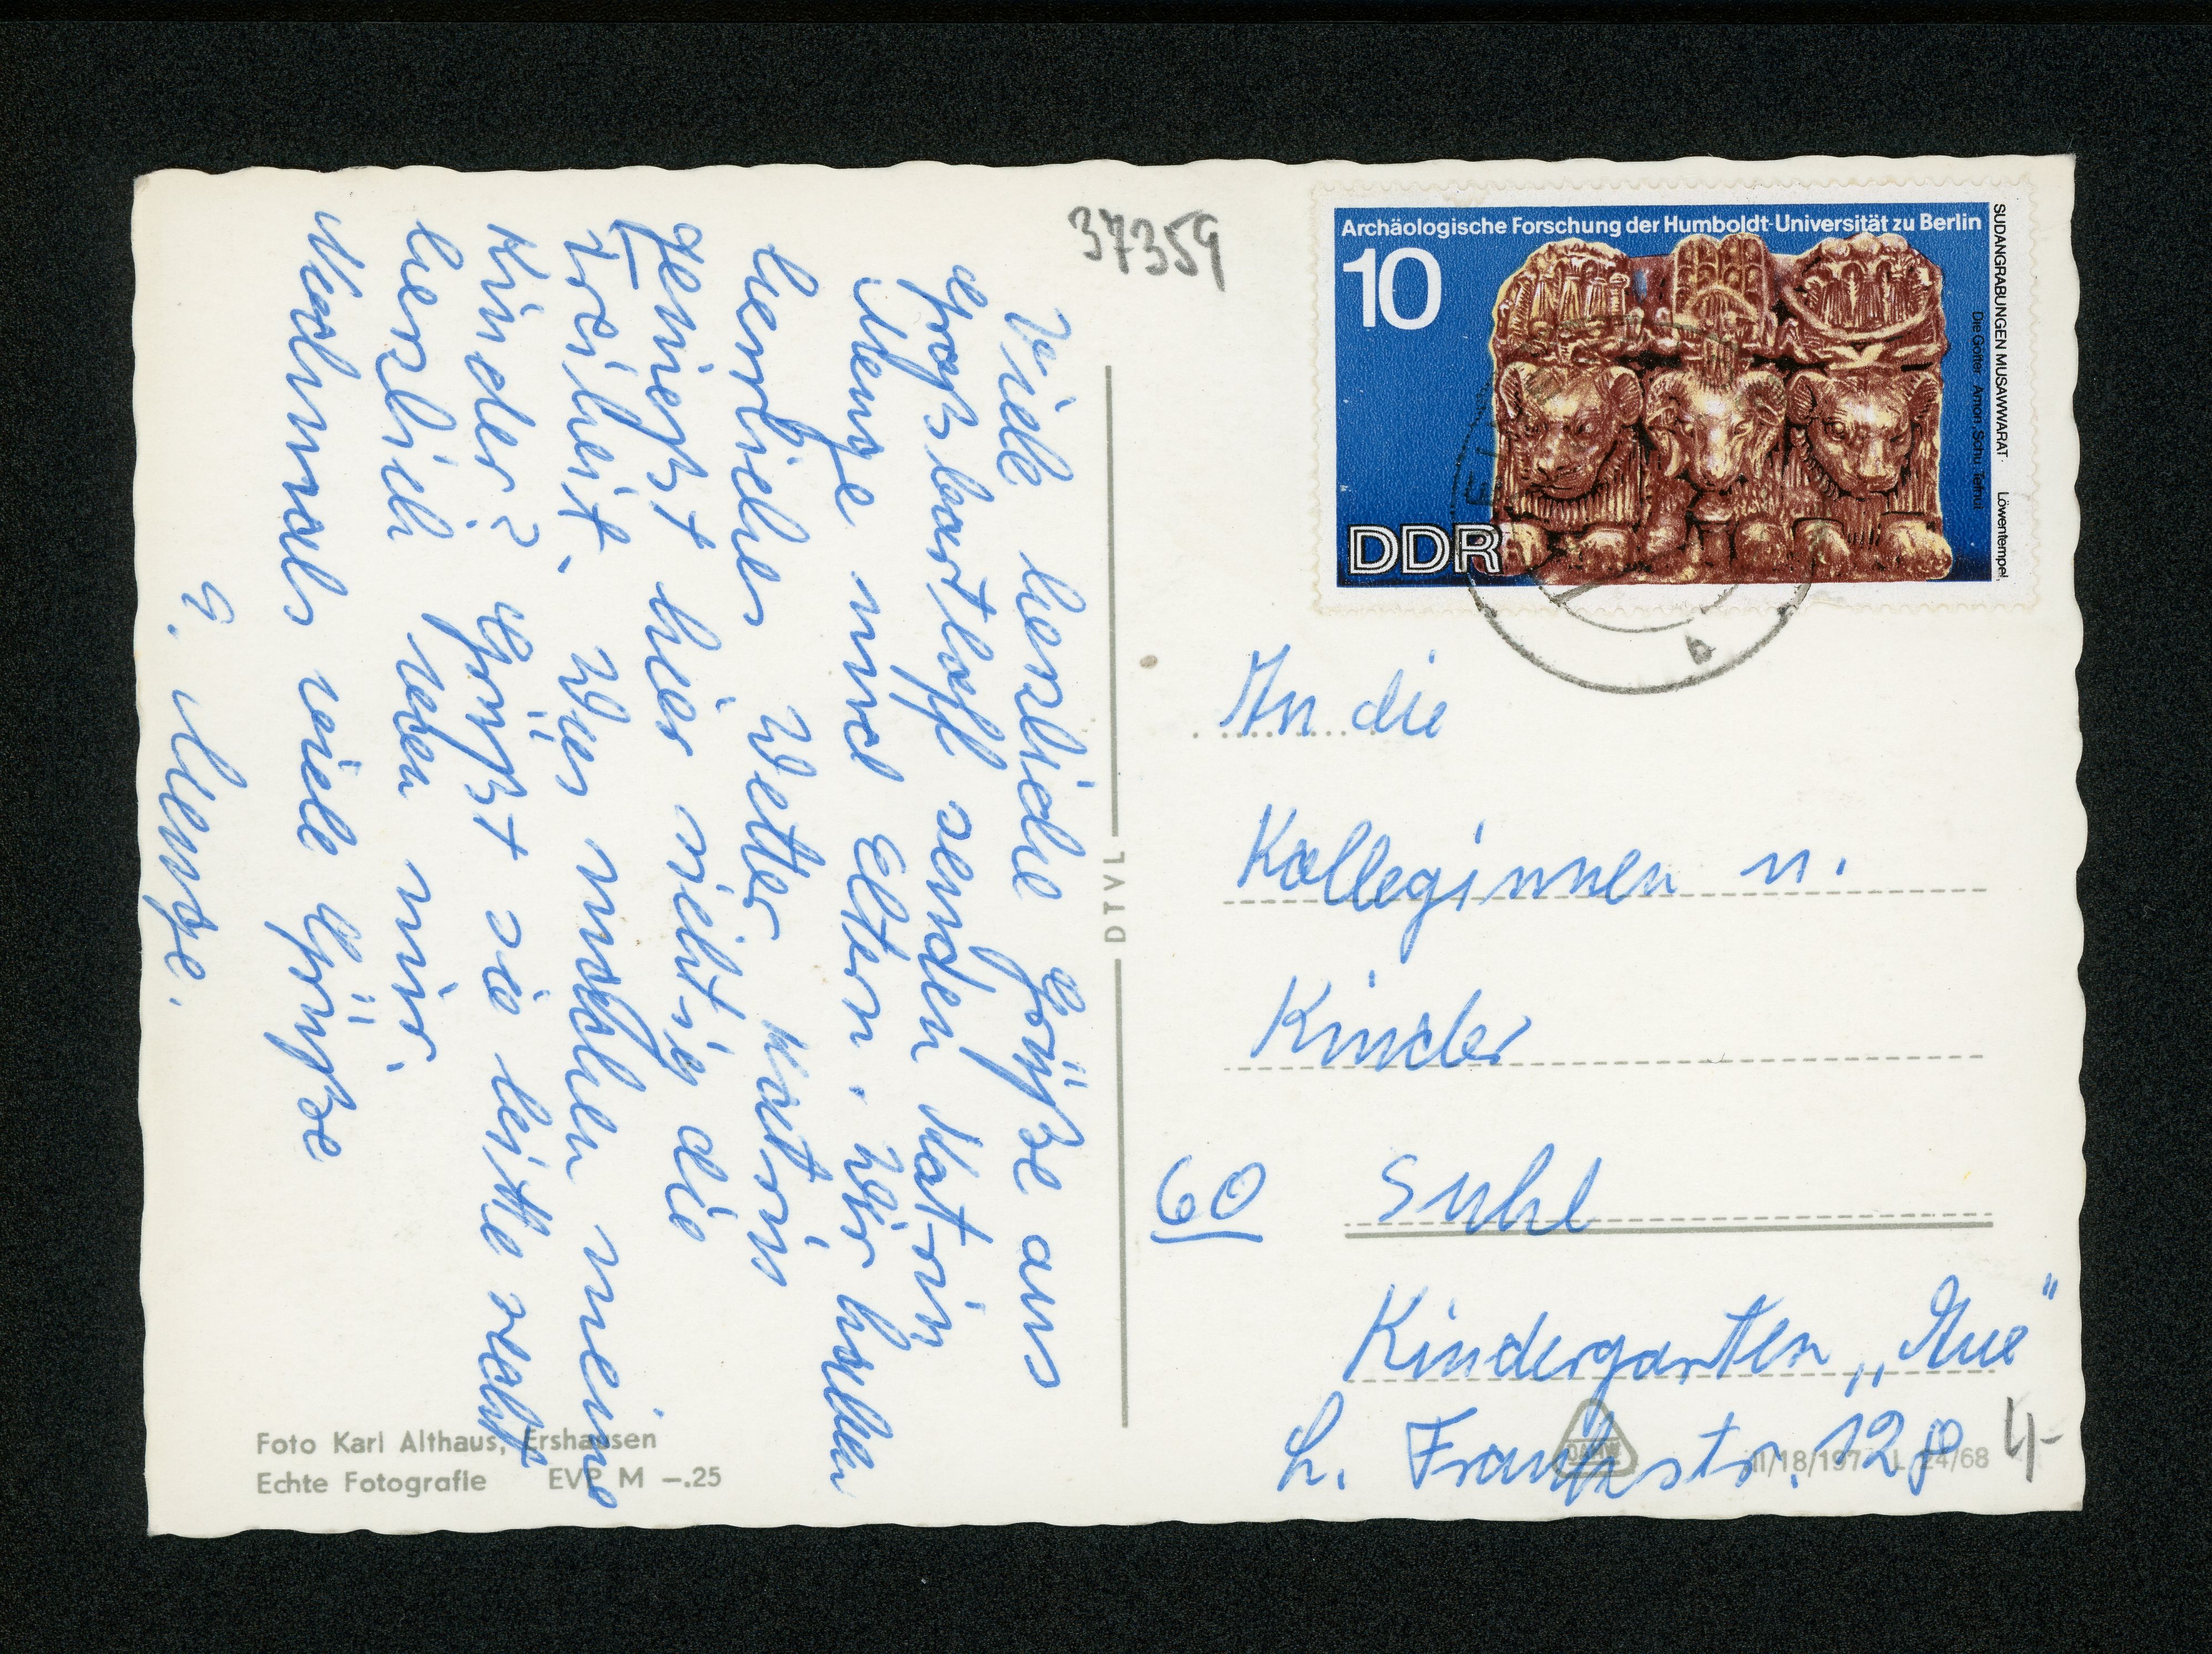 37359
Viele herzliche Grüße aus
Großbartloff senden Katrin
Menge und Eltern. Wir haben
herrliches Wetter Katrin
genießt hier richtig die
Freiheit. Was machen meine
Kinder? Grüßt sie bitte recht
herzlich von mir.
Nochmals viele Grüße
G. Menge.
Foto Karl Althaus, Ershausen
Echte Fotografie EVP M –.25
DTVL
Archäologische Forschung der Humboldt-Universität zu Berlin
10
DDR
SUDANGRABUNGEN MUSAWWARAT · Löwentempel,
Die Götter Amon, Schu, Tefnut
b
An die
Kolleginnen u.
Kinder
60 Suhl
Kindergarten „Aue"
L. Frankstr. 12
4-